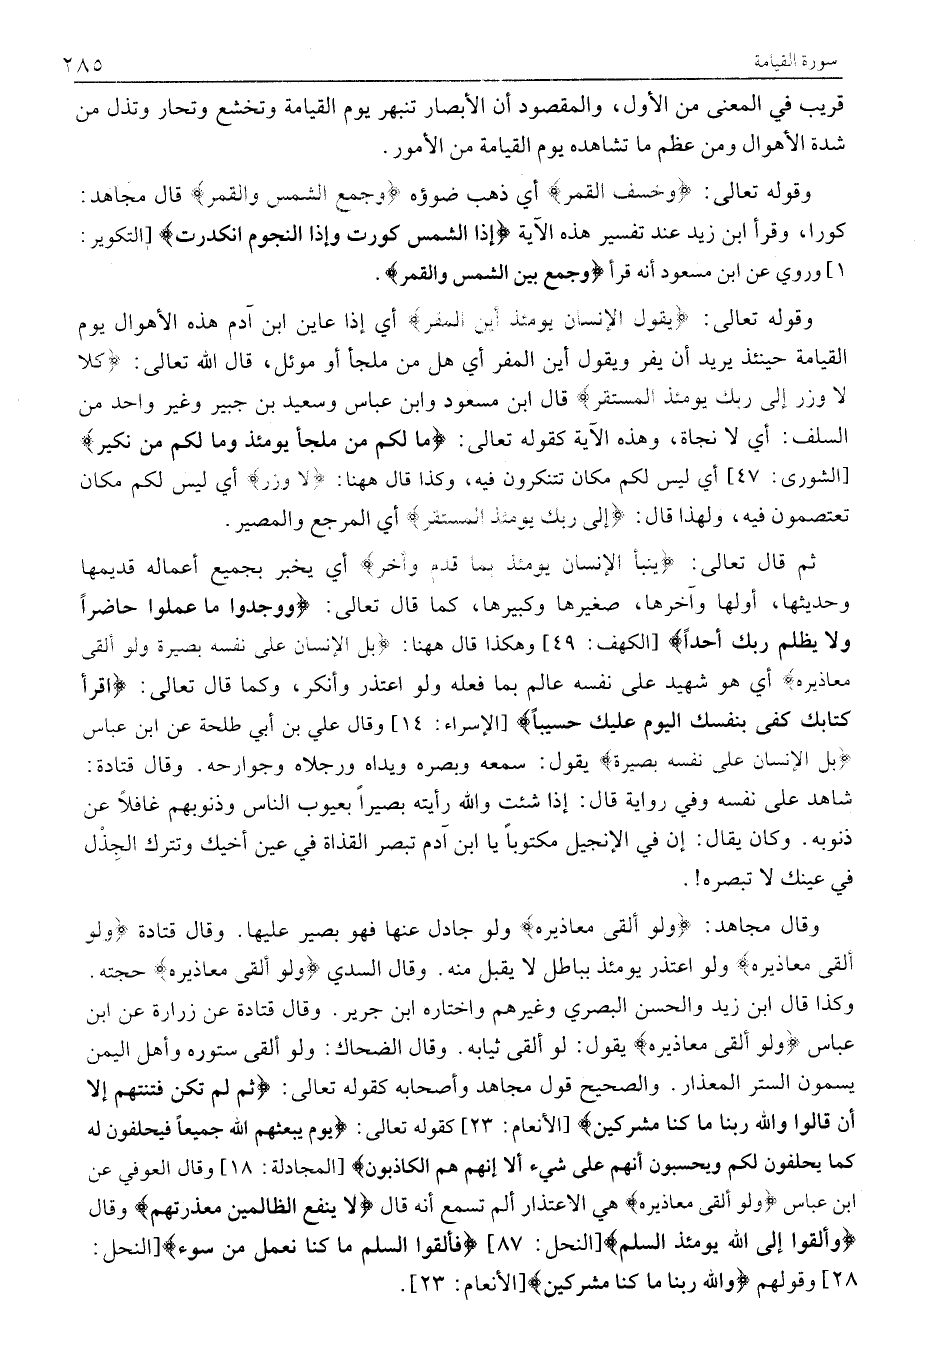 سورة القيامة
٢٨٥
قريب في المعنى من الأول، والمقصود أن الأبصار تنبهر يوم القيامة وتخشع وتحار وتذل من
شدة الأهوال ومن عظم ما تشاهده يوم القيامة من الأمور.
وقوله تعالى: ﴿وخسف القمر﴾ أي ذهب ضوؤه ﴿وجمع الشمس والقمر﴾ قال مجاهد:
كورا، وقرأ ابن زيد عند تفسير هذه الآية ﴿إذا الشمس كورت وإذا النجوم انكدرت﴾ [التكوير:
١] وروي عن ابن مسعود أنه قرأ ﴿وجمع بين الشمس والقمر﴾.
وقوله تعالى: ﴿يقول الإنسان يومئذ أين المفر﴾ أي إذا عاين ابن آدم هذه الأهوال يوم
القيامة حينئذ يريد أن يفر ويقول أين المفر أي هل من ملجأ أو موئل، قال الله تعالى: ﴿كلا
لا وزر إلى ربك يومئذ المستقر﴾ قال ابن مسعود وابن عباس وسعيد بن جبير وغير واحد من
السلف: أي لا نجاة، وهذه الآية كقوله تعالى: ﴿ما لكم من ملجأ يومئذ وما لكم من نكير﴾
[الشورى: ٤٧] أي ليس لكم مكان تتنكرون فيه، وكذا قال ههنا: ﴿لا وزر﴾ أي ليس لكم مكان
تعتصمون فيه، ولهذا قال: ﴿إلى ربك يومئذ المستقر﴾ أي المرجع والمصير.
ثم قال تعالى: ﴿ينبأ الإنسان يومئذ بما قدم وأخر﴾ أي يخبر بجميع أعماله قديمها
وحديثها، أولها وآخرها، صغيرها وكبيرها، كما قال تعالى: ﴿ووجدوا ما عملوا حاضراً
ولا يظلم ربك أحداً﴾ [الكهف: ٤٩] وهكذا قال ههنا: ﴿بل الإنسان على نفسه بصيرة ولو ألقى
معاذيره﴾ أي هو شهيد على نفسه عالم بما فعله ولو اعتذر وأنكر، وكما قال تعالى: ﴿اقرأ
كتابك كفى بنفسك اليوم عليك حسيباً﴾ [الإسراء: ١٤] وقال علي بن أبي طلحة عن ابن عباس
﴿بل الإنسان على نفسه بصيرة﴾ يقول: سمعه وبصره ويداه ورجلاه وجوارحه. وقال قتادة:
شاهد على نفسه وفي رواية قال: إذا شئت والله رأيته بصيراً بعيوب الناس وذنوبهم غافلاً عن
ذنوبه. وكان يقال: إن في الإنجيل مكتوباً يا ابن آدم تبصر القذاة في عين أخيك وتترك الجِذْل
في عينك لا تبصره!.
وقال مجاهد: ﴿ولو ألقى معاذيره﴾ ولو جادل عنها فهو بصير عليها. وقال قتادة ﴿ولو
ألقى معاذيره﴾ ولو اعتذر يومئذ بباطل لا يقبل منه. وقال السدي ﴿ولو ألقى معاذيره﴾ حجته.
وكذا قال ابن زيد والحسن البصري وغيرهم واختاره ابن جرير. وقال قتادة عن زرارة عن ابن
عباس ﴿ولو ألقى معاذيره﴾ يقول: لو ألقى ثيابه. وقال الضحاك: ولو ألقى ستوره وأهل اليمن
يسمون الستر المعذار. والصحيح قول مجاهد وأصحابه كقوله تعالى: ﴿ثم لم تكن فتنتهم إلا
أن قالوا والله ربنا ما كنا مشركين﴾ [الأنعام: ٢٣] كقوله تعالى: ﴿يوم يبعثهم الله جميعاً فيحلفون له
كما يحلفون لكم ويحسبون أنهم على شيء ألا إنهم هم الكاذبون﴾ [المجادلة: ١٨] وقال العوفي عن
ابن عباس ﴿ولو ألقى معاذيره﴾ هي الاعتذار ألم تسمع أنه قال ﴿لا ينفع الظالمين معذرتهم﴾ وقال
﴿وألقوا إلى الله يومئذ السلم﴾[النحل: ٨٧] ﴿فألقوا السلم ما كنا نعمل من سوء﴾[النحل:
٢٨] وقولهم ﴿والله ربنا ما كنا مشركين﴾[الأنعام: ٢٣].